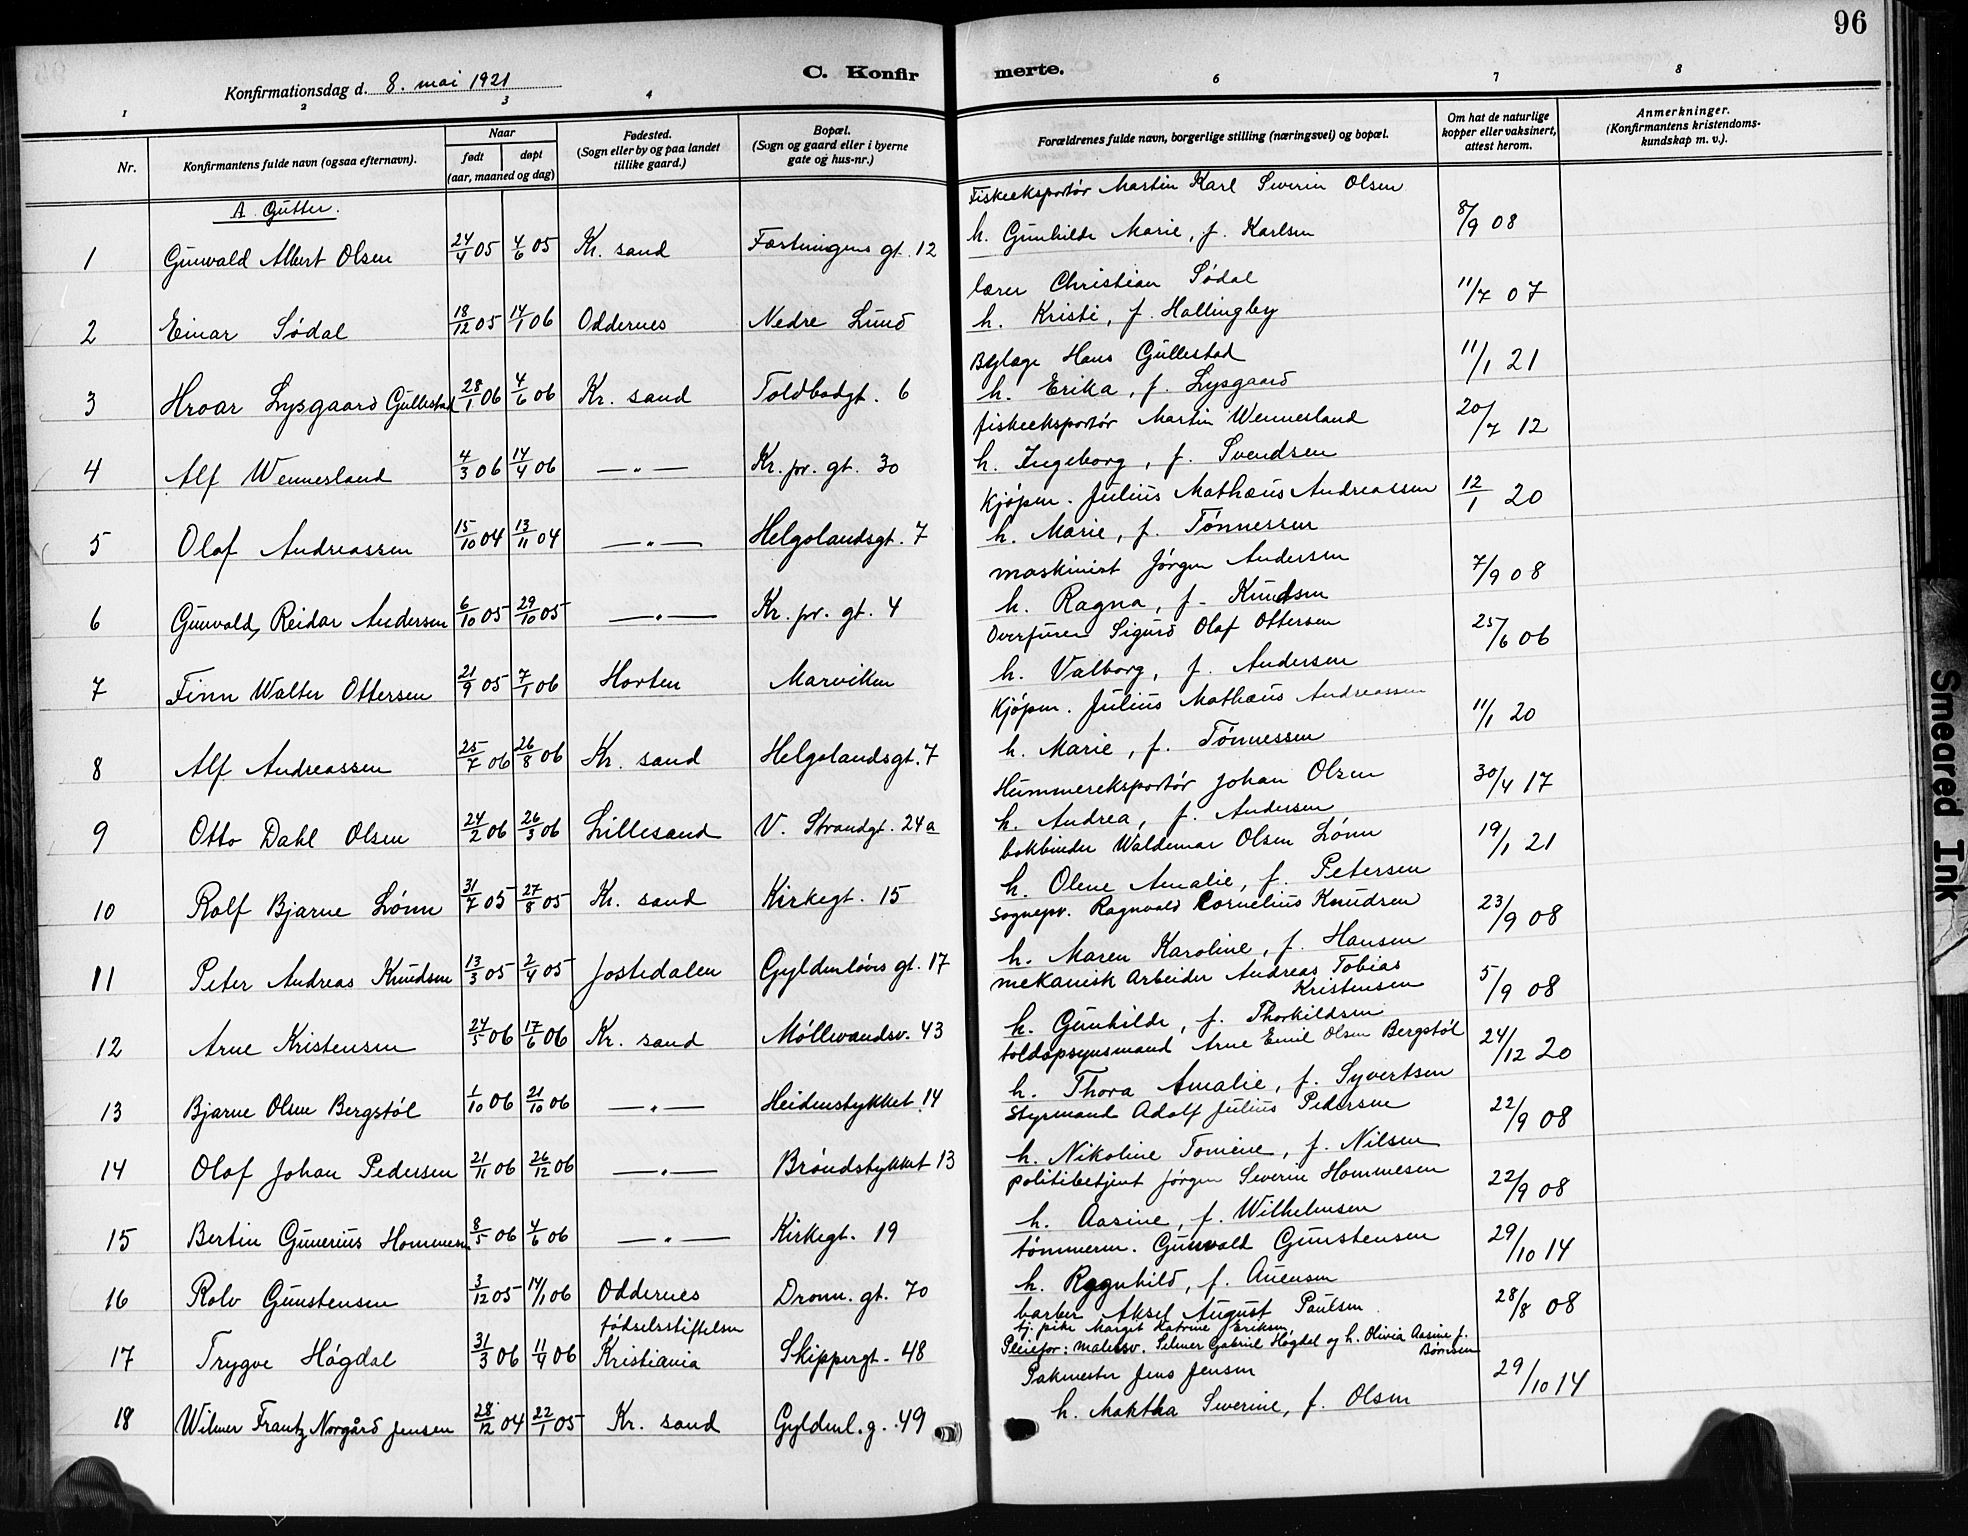 96
C. Konfirmerte.
Konfirmationsdag d. 8. mai 1921
1 2 3 4 6 7 8
Nr.
Konfirmantens fulde navn (ogsaa efternavn).
Naar
født
døpt
(aar, maaned og dag)
Fødested.
(Sogn eller by og paa landet
tillike gaard.)
Bopæl.
(Sogn og gaard eller i byerne
gate og hus-nr.)
Forældrenes fulde navn, borgerlige stilling (næringsvei) og bopæl.
Om hat de naturlige
kopper eller vaksinert,
attest herom.
Anmerkninger.
(Konfirmantens kristendoms-
kundskap m. v.).
A. Gutter.
Fiskeeksportør Martin Karl Severin Olsen
1 Gunvald Albert Olsen 24/4 05 4/6 05 Kr. sand Fæstningens gt. 12 h. Gunhilde Marie, f. Karlsen 8/9 08
lærer Christian Sødal
2 Einar Sødal 18/12 05 14/1 06 Oddernes Nedre Lund h. Kristi, f. Hallingby 11/7 07
Hans Gullestad
3 Hroar Lysgaard Gullestad 28/1 06 4/6 06 Kr. sand Toldbodgt. 6 h. Erika, f. Lysgaard 11/1 21
fiskeeksportør Martin Wennesland
4 Alf Wennesland 4/3 06 14/4 06 —"— Kr. pr. gt. 30 h. Ingeborg, f. Svendsen 20/7 12
Kjøpm. Julius Mathæus Andreassen
5 Olaf Andreassen 15/10 04 13/11 04 —"— Helgolandsgt. 7 h. Marie, f. Tønnessen 12/1 20
maskinist Jørgen Andersen
6 Gunvald Reidar Andersen 6/10 05 29/10 05 —"— Kr. pr. gt. 4 h. Ragna, f. Knudsen 7/9 08
Overfurer Sigurd Olaf Ottersen
7 Finn Walter Ottersen 21/9 05 7/1 06 Horten Marviken h. Valborg, f. Andersen 25/6 06
Kjøpm. Julius Mathæus Andreassen
8 Alf Andreassen 25/7 06 26/8 06 Kr. sand Helgolandsgt. 7 h. Marie, f. Tønnessen 11/1 20
Hummereksportør Johan Olsen
9 Otto Dahl Olsen 24/2 06 26/3 06 Lillesand V. Strandgt. 24a h. Andrea, f. Andersen 30/4 17
bokbinder Waldemar Olsen Lønn
10 Rolf Bjarne Lønn 31/7 05 27/8 05 Kr. sand Kirkegt. 15 h. Olene Amalie, f. Petersen 19/1 21
Sognepr. Ragnvald Cornelius Knudsen
11 Peter Andreas Knudsen 13/3 05 2/4 05 Jostedalen Gyldenløves gt. 17 h. Maren Karoline, f. Hansen 23/9 08
mekanisk Arbeider Andreas Tobias
Kristensen
12 Arne Kristensen 24/5 06 17/6 06 Kr. sand Møllevandsv. 43 h. Gunhilde, f. Thorkildsen 5/9 08
toldopsynsmand Arne Emil Olsen Bergstøl
13 Bjarne Olsen Bergstøl 1/10 06 21/10 06 —"— Heidenstykket 14 h. Thora Amalie, f. Syvertsen 24/12 20
Styrmand Adolf Julius Pedersen
14 Olaf Johan Pedersen 21/11 06 26/12 06 —"— Brøndstykket 13 h. Nikoline Tomine, f. Nilsen 22/9 08
politibetjent Jørgen Severin Hommesen
15 Bertin Gunerius Hommesen 8/5 06 4/6 06 —"— Kirkegt. 19 h. Aasine, f. Wilhelmsen 22/9 08
tømmerm. Gunvald Gunstensen
16 Rolv Gunstensen 3/12 05 14/1 06 Oddernes Dronn. gt. 70 h. Ragnhild, f. Auensen 29/10 14
barber Aksel August Paulsen
tj. pike Margit Katrine Eriksen
fødselsstiftelsen
17 Trygve Høgdal 31/3 06 11/4 06 Kristiania Skippergt. 48 Pleiefor: malersv. Selmer Gabriel Høgdal og h. Olivia Aasine f.
Børnsen 28/8 08
Pakmester Jens Jensen
18 Wilmer Frantz Norgård Jensen 28/12 04 22/1 05 Kr. sand Gyldenl. g. 49 h. Maktha Severine, f. Olsen 29/10 14
Smeared Ink